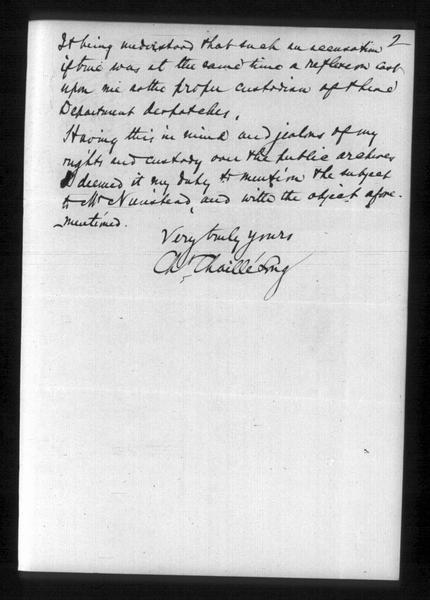 2
It being understood that such an accusation
if true was at the same time a reflexion cast
upon me as the proper custodian of these
Department despatches.
Having this in mind and jealous of my
rights and custody over the public archives
I deemed it my duty to mention the subject
to Mr Nienstead, and with the object afore-
-mentioned.
Very truly yours
Chs Chaillé Long